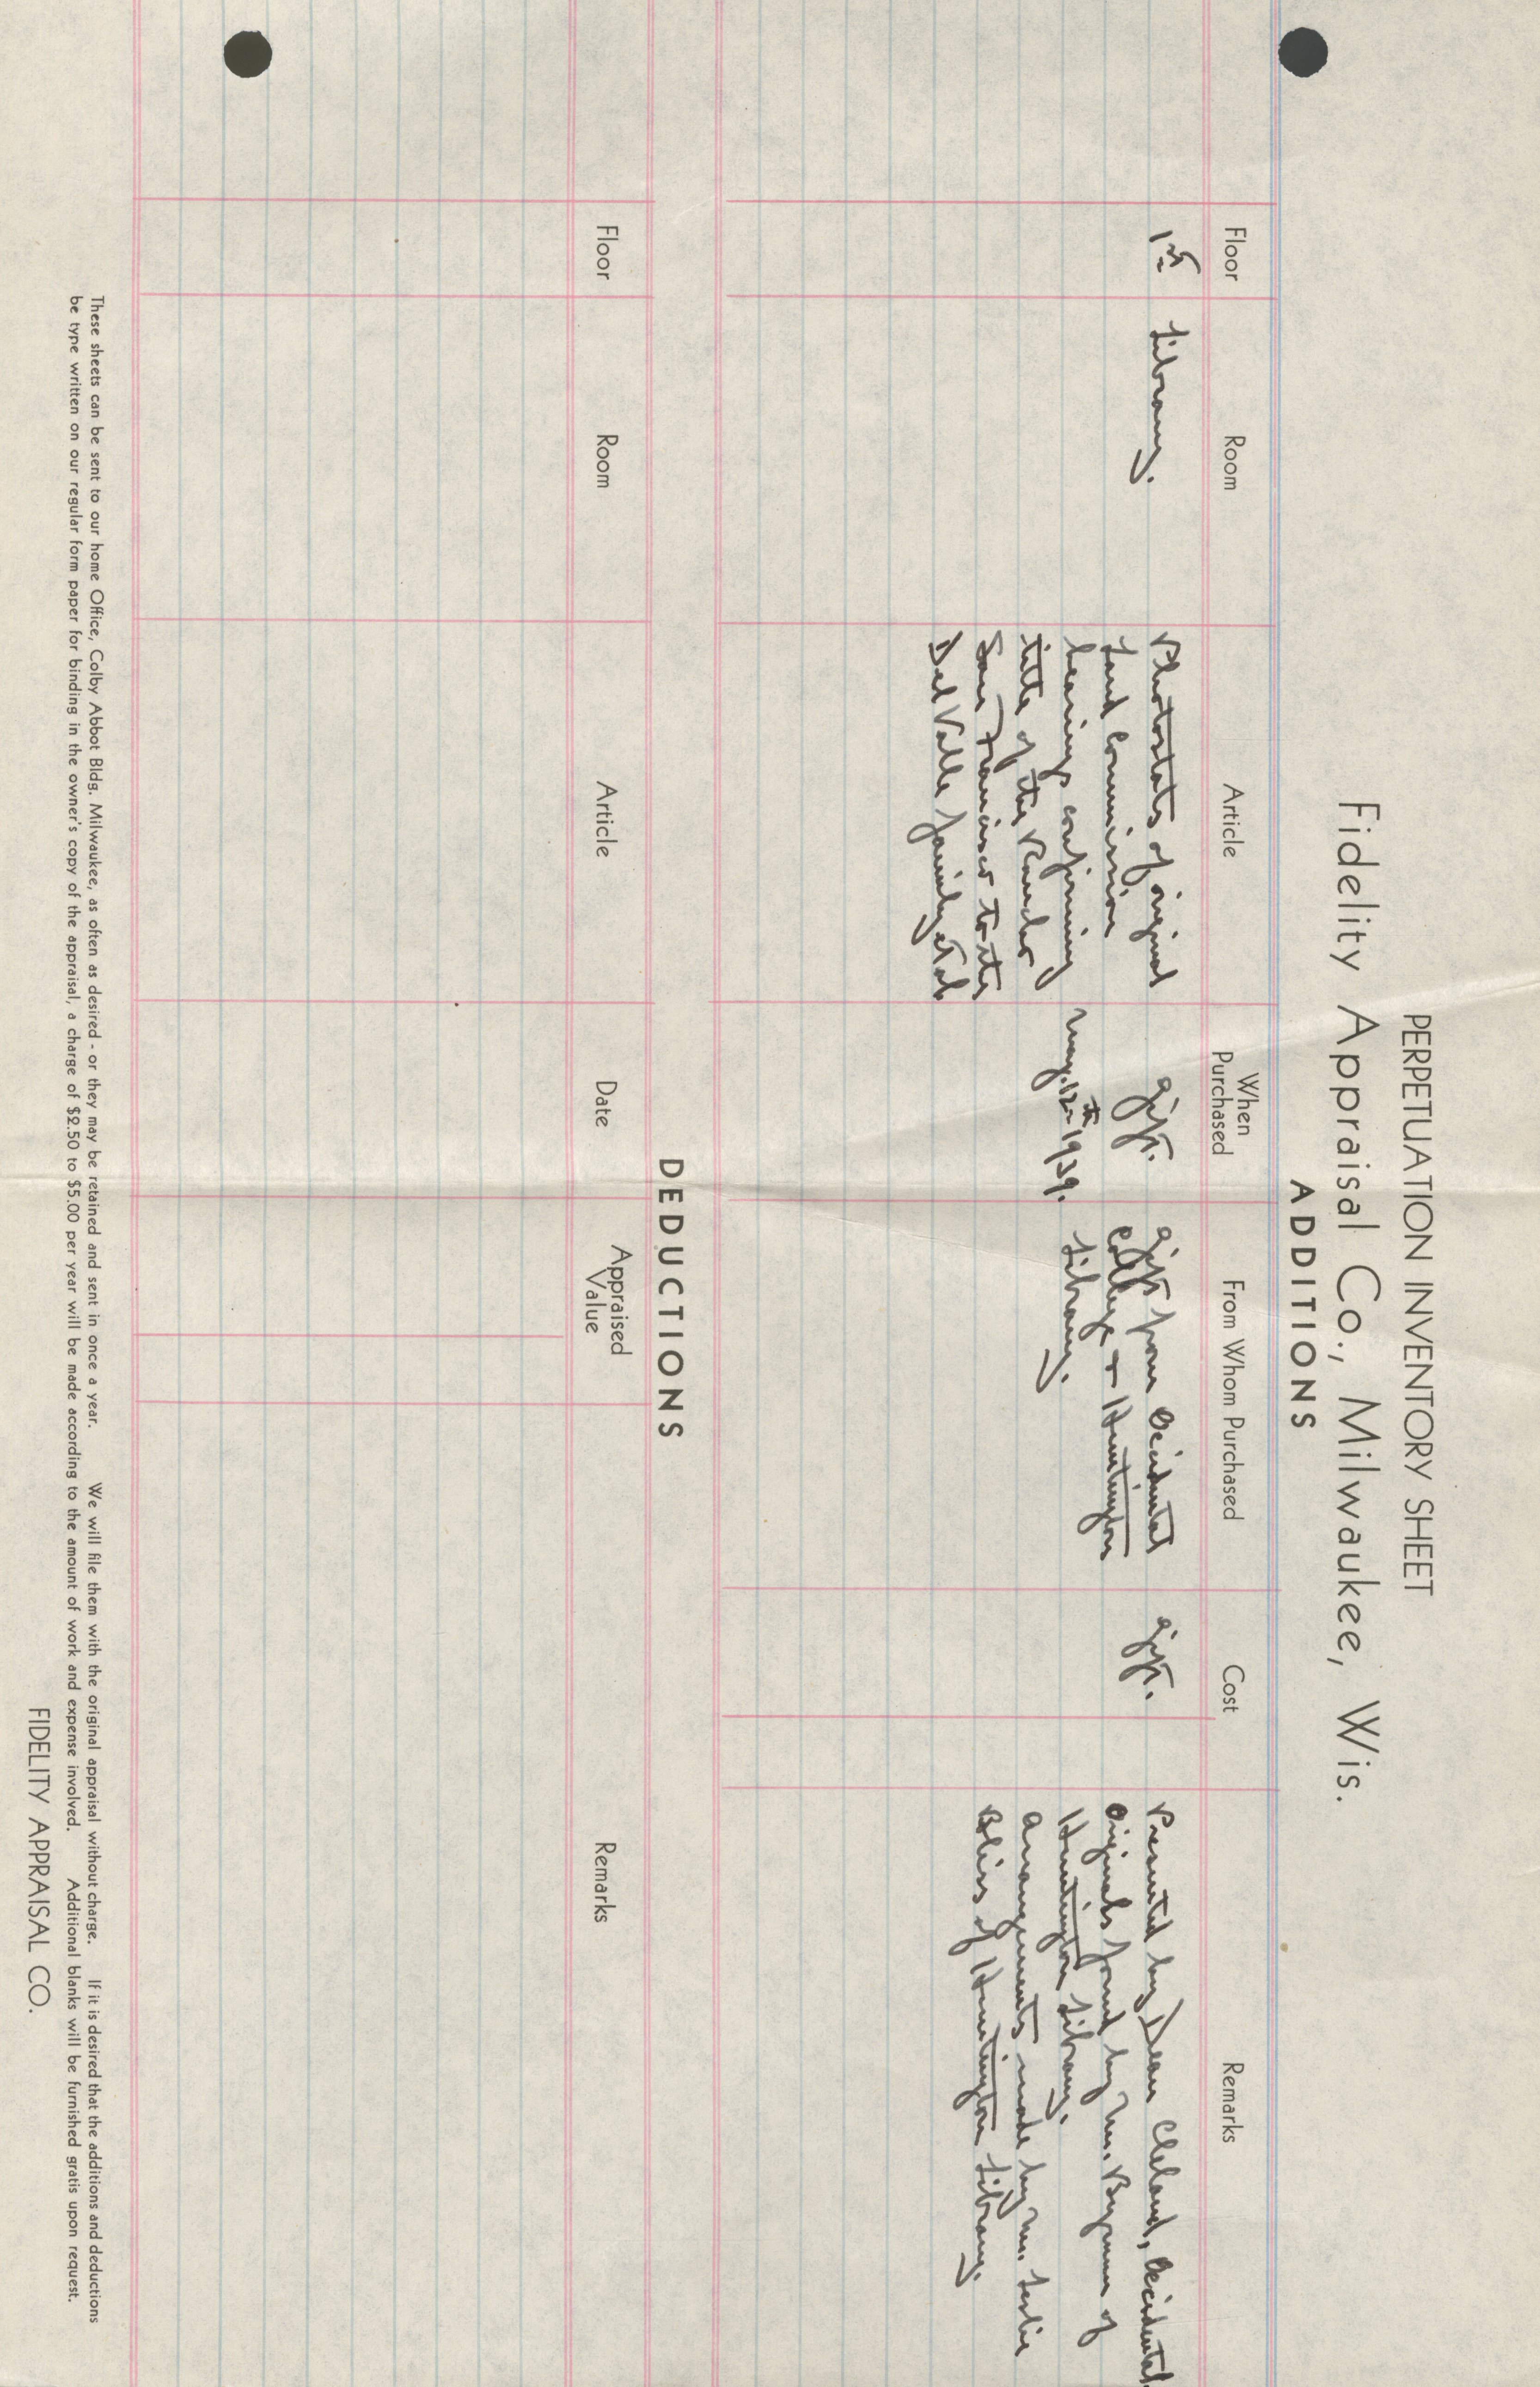 PERPETUATION INVENTORY SHEET
Fidelity Appraisal Co., Milwaukee, Wis.
ADDITIONS
Floor Room Article When Purchased From Whom Purchased Cost Remarks
1st Library. Photostats of original gift. gift from Occidental gift. Presented by Dean Cleland, Occidental.
Land Commission College & Huntington Originals found by Mr. Bynum of
hearings confirming May. 12th 1939. Library. Huntington Library.
title of the Rancho Arrangements made by Mr. Leslie
San Francisco to the Bliss of Huntington Library.
Del Valle family et al
DEDUCTIONS
Floor Room Article Date Appraised Value Remarks
These sheets can be sent to our home Office, Colby Abbot Bldg. Milwaukee, as often as desired - or they may be retained and sent in once a year. We will file them with the original appraisal without charge. If it is desired that the additions and deductions
be type written on our regular form paper for binding in the owner's copy of the appraisal, a charge of $2.50 to $5.00 per year will be made according to the amount of work and expense involved. Additional blanks will be furnished gratis upon request.
FIDELITY APPRAISAL CO.